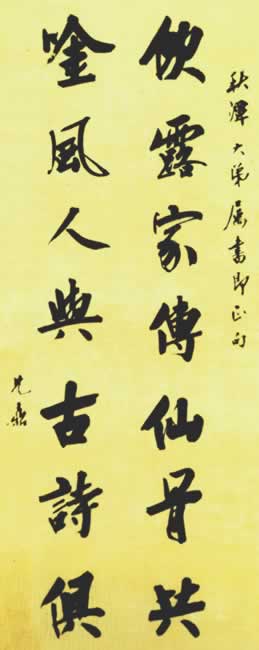 秋潭大弟屬書即正
飲露家傳仙骨共
唫風人與古詩俱